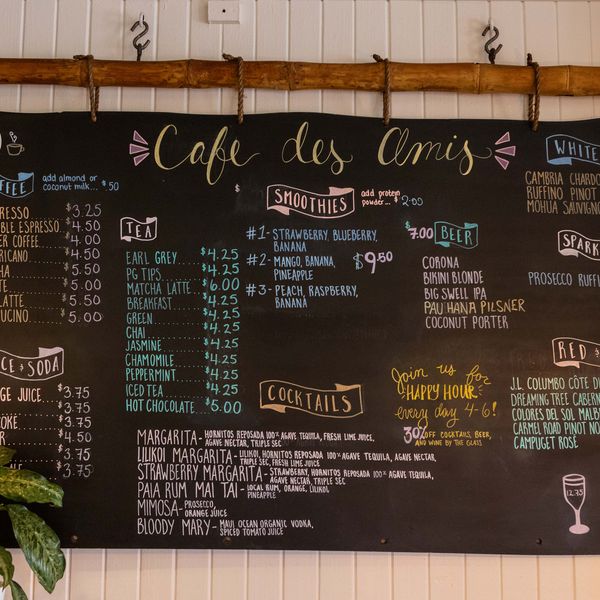 Cafe des Amis
add almond or
coconut milk... $.50
$3.25
$4.50
$4.00
$4.50
$5.50
$5.00
$5.50
$5.00
TEA
EARL GREY $4.25
PG TIPS $4.25
MATCHA LATTE $6.00
BREAKFAST $4.25
GREEN $4.25
CHAI $4.25
JASMINE $4.25
CHAMOMILE $4.25
PEPPERMINT $4.25
ICED TEA $4.25
HOT CHOCOLATE $5.00
SMOOTHIES
add protein
powder... $2.00
#1- STRAWBERRY, BLUEBERRY,
BANANA
#2- MANGO, BANANA,
PINEAPPLE
#3- PEACH, RASPBERRY,
BANANA
$9.50
$7.00 BEER
CORONA
BIKINI BLONDE
BIG SWELL IPA
PAU HANA PILSNER
COCONUT PORTER
WHITE
CAMBRIA
RUFFINO PINOT
MOHUA
PROSECCO
& SODA
JUICE. $3.75
$3.75
$3.75
$4.50
$3.75
$3.75
COCKTAILS
Join us for
"HAPPY HOUR"
every day 4-6!
30% OFF COCKTAILS, BEER,
AND WINE BY THE GLASS
MARGARITA- HORNITOS REPOSADA 100% AGAVE TEQUILA, FRESH LIME JUICE,
AGAVE NECTAR, TRIPLE SEC
LILIKOI MARGARITA- LILIKOI, HORNITOS REPOSADA 100% AGAVE TEQUILA, AGAVE NECTAR,
TRIPLE SEC, FRESH LIME JUICE
STRAWBERRY MARGARITA- STRAWBERRY, HORNITOS REPOSADA 100% AGAVE TEQUILA,
AGAVE NECTAR, TRIPLE SEC
PAIA RUM MAI TAI- LOCAL RUM, ORANGE, LILIKOI,
PINEAPPLE
MIMOSA- PROSECCO,
ORANGE JUICE
BLOODY MARY- MAUI OCEAN ORGANIC VODKA,
SPICED TOMATO JUICE
RED
J.L. COLUMBO CÔTE
DREAMING TREE
COLORES DEL SOL
CARMEL ROAD PINOT
CAMPUGET ROSE
12.75